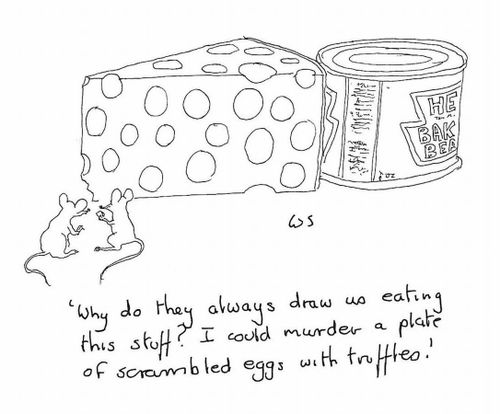 HE
BAK
BEA
WS
'Why do they always draw us eating
this stuff? I could murder a plate
of scrambled eggs with truffles.'